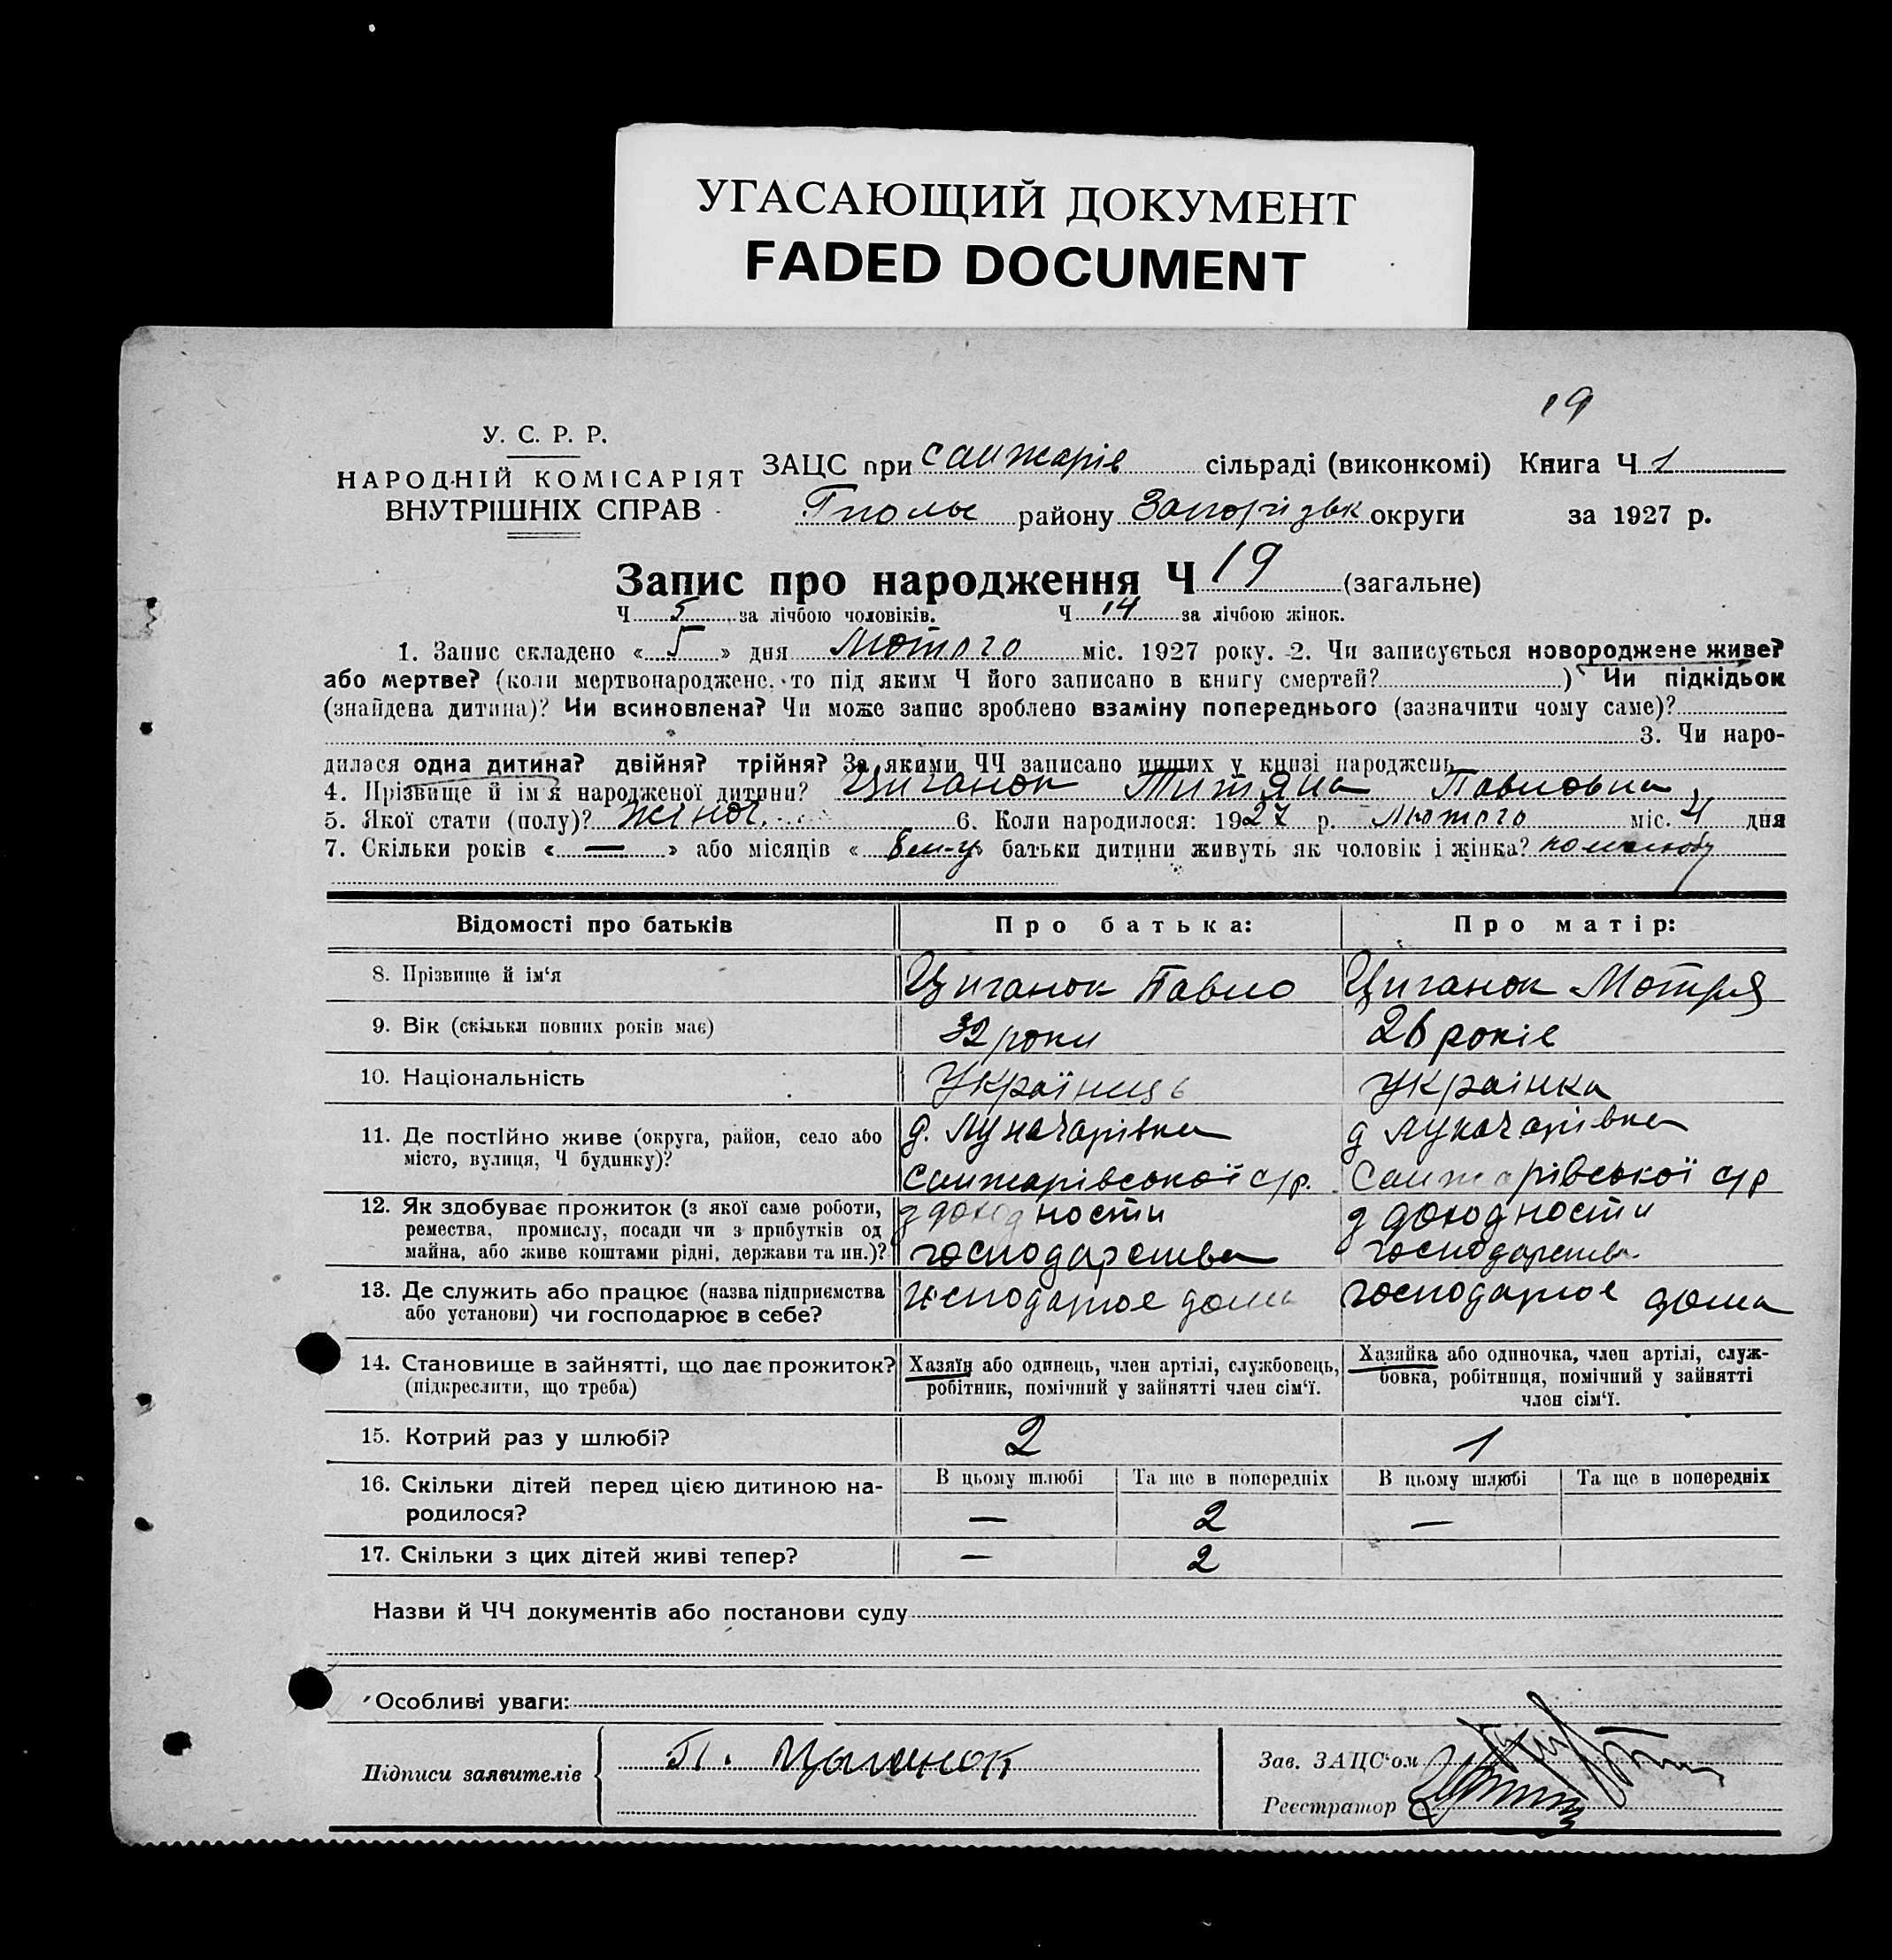 УГАСАЮЩИЙ ДОКУМЕНТ
FADED DOCUMENT
19
У. С. Р. Р.
НАРОДНІЙ КОМІСАРІЯТ
ВНУТРІШНІХ СПРАВ
ЗАЦС при Санжарів сільраді (виконкомі) Книга Ч 1
району Запорізьк округи за 1927 р.
Запис про народження Ч 19 (загальне)
Ч 5 за лічбою чоловіків. Ч 14 за лічбою жінок.
1. Запис складено «5» дня Лютого міс. 1927 року. 2. Чи записується новороджене живе?
або мертве? (коли мертвонароджене, то під яким Ч його записано в книгу смертей? ) Чи підкідьок
(знайдена дитина)? Чи всиновлена? Чи може запис зроблено взаміну попереднього (зазначити чому саме)?
3. Чи наро-
дилася одна дитина? двійня? трійня? За якими ЧЧ записано инших у книзі народжень
4. Прізвище й ім'я народженої дитини? Циганок Титяна Павловна
5. Якої стати (полу)? жіноч. 6. Коли народилося: 1927 р. Лютого міс. 4 дня
7. Скільки років «—» або місяців «8 м-ц» батьки дитини живуть як чоловік і жінка?
Відомості про батьків
Про батька:
Про матір:
8. Прізвище й ім'я
Циганок Павло
Циганок Мотря
9. Вік (скільки повних років має)
32 роки
26 років
10. Національність
Українець
Українка
11. Де постійно живе (округа, район, село або
місто, вулиця, Ч будинку)?
д. Луначарівка
Санжарівської с/р.
д Луначарівка
Санжарівської с/р
12. Як здобуває прожиток (з якої саме роботи,
ремества, промислу, посади чи з прибутків од
майна, або живе коштами рідні, держави та ин.)?
з доходности
господарства
з доходности
господарства
13. Де служить або працює (назва підприємства
або установи) чи господарює в себе?
господарює дома
господарює дома
14. Становище в зайнятті, що дає прожиток?
(підкреслити, що треба)
Хазяїн або одинець, член артілі, службовець,
робітник, помічний у зайнятті член сім'ї.
Хазяйка або одиночка, член артілі, служ-
бовка, робітниця, помічний у зайнятті
член сім'ї.
15. Котрий раз у шлюбі?
2
1
16. Скільки дітей перед цією дитиною на-
родилося?
В цьому шлюбі
Та ще в попередніх
В цьому шлюбі
Та ще в попередніх
—
2
—
17. Скільки з цих дітей живі тепер?
—
2
Назви й ЧЧ документів або постанови суду
Особливі уваги:
Підписи заявителів
П. Цыганок
Зав. ЗАЦС'ом
Реєстратор